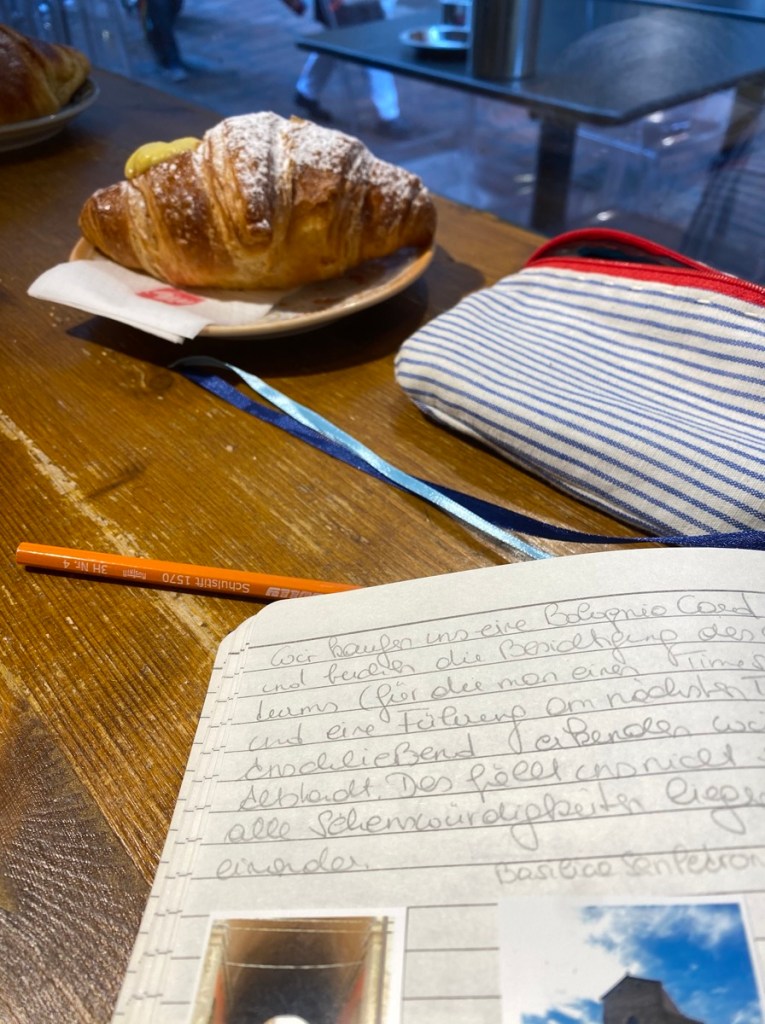 Schulstift 1570 3H Nr. 4
Wir kaufen uns eine Bologna Card
und buchen die Besichtigung des
(für die man einen Times
und eine Führung am nächsten T
Anschließend
Altstadt. Das fällt uns nicht
alle Sehenswürdigkeiten liege
einander.
Basilica San Petron